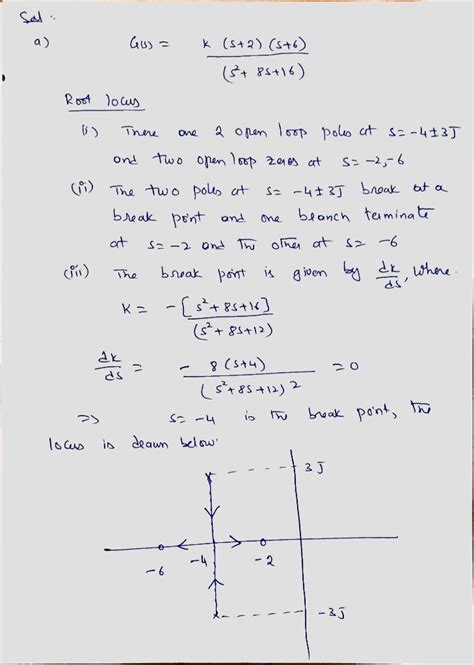 Sol :
a) G(s) = K (s+2) (s+6)
(s²+ 8s+16)
Root locus
(i) There are 2 open loop poles at s= -4±3J
and two open loop zeros at s= -2,-6
(ii) The two poles at s= -4±3J break at a
break point and one branch terminate
at s= -2 and the other at s= -6
(iii) The break point is given by dk/ds, where.
K = -[s²+8s+16]
(s²+8s+12)
dk/ds = - 8(s+4) = 0
(s²+8s+12)2
=> s= -4 is the break point, the
locus is drawn below.
3J
-6 -4 -2
-3J